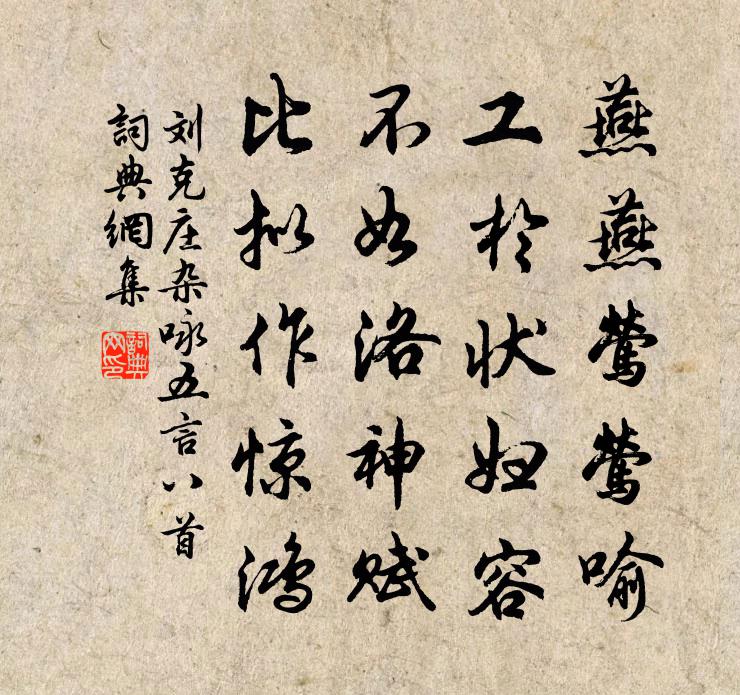 燕燕莺莺喻
工於状妇容
不如洛神赋
比拟作惊鸿
刘克庄杂咏五言八首
詞典網集
詞典网印